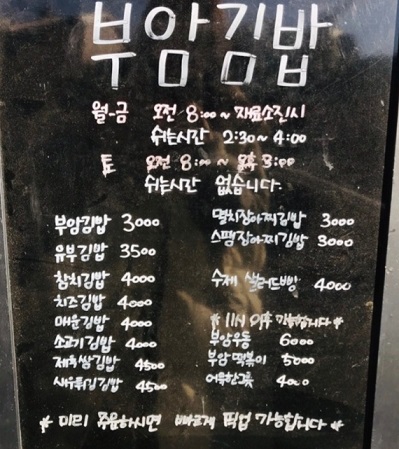 부암김밥
월-금 오전 8:00~재료소진시
쉬는시간 2:30~4:00
토 오전 8:00~ 오후 3:00
쉬는시간 없습니다.
부암김밥 3000
유부김밥 3500
참치김밥 4000
치즈김밥 4000
매운김밥 4000
소고기김밥 4000
제육쌈김밥 4500
새우튀김김밥 4500
멸치장아찌김밥 3000
스팸장아찌김밥 3000
수제 샐러드빵 4000
* 11시 이후 가능합니다 *
부암우동 6000
부암 떡볶이 5000
어묵한그릇 4000
* 미리 주문하시면 빠르게 픽업 가능합니다 *